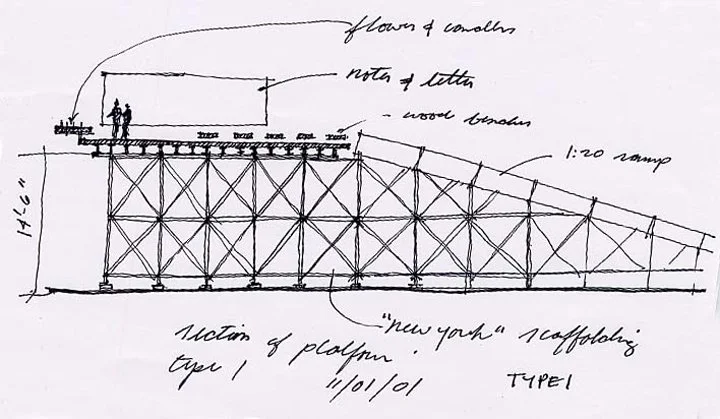 flower & candles
notes & letter
wood benches
1:20 ramp
14'-6"
"new york" scaffolding
section of platform.
type 1
11/01/01
TYPE 1